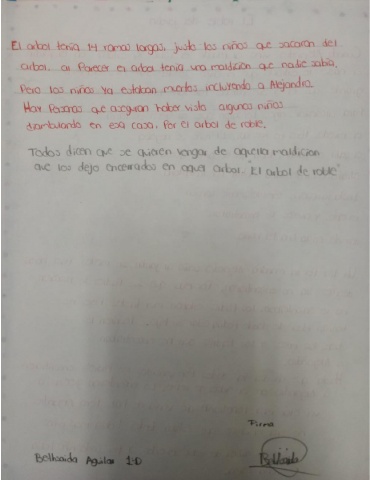 El arbol tenia 14 ramas largas, justo los niños que sacaron del
arbol. al Parecer el arbol tenia una maldicion que nadie sabia,
Pero los niños ya estaban muertos incluyendo a Alejandro.
Hay Personas que aseguran haber visto algunos niños
diambulando en esa casa, Por el arbol de roble.
Todos dicen que se quieren vengar de aquella maldicion
que los dejo encerrados en aquel arbol. "El arbol de roble"
Firma
Bellsaida Aguilar 1-D